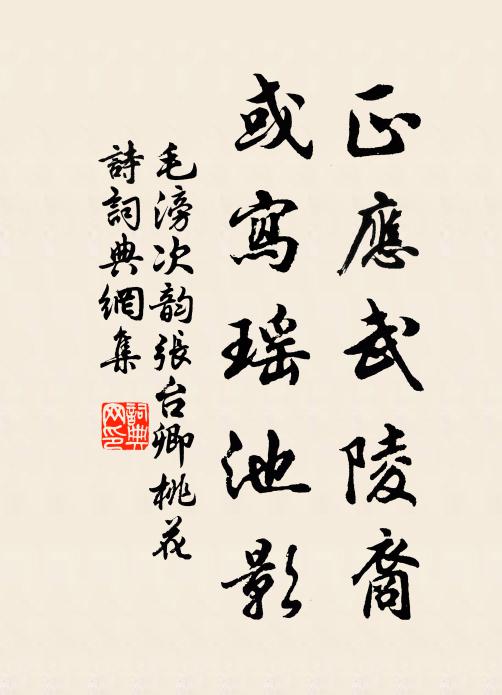 正應武陵裔
或寫瑶池影
毛滂次韵張台卿桃花
詩詞典網集
詞典网印